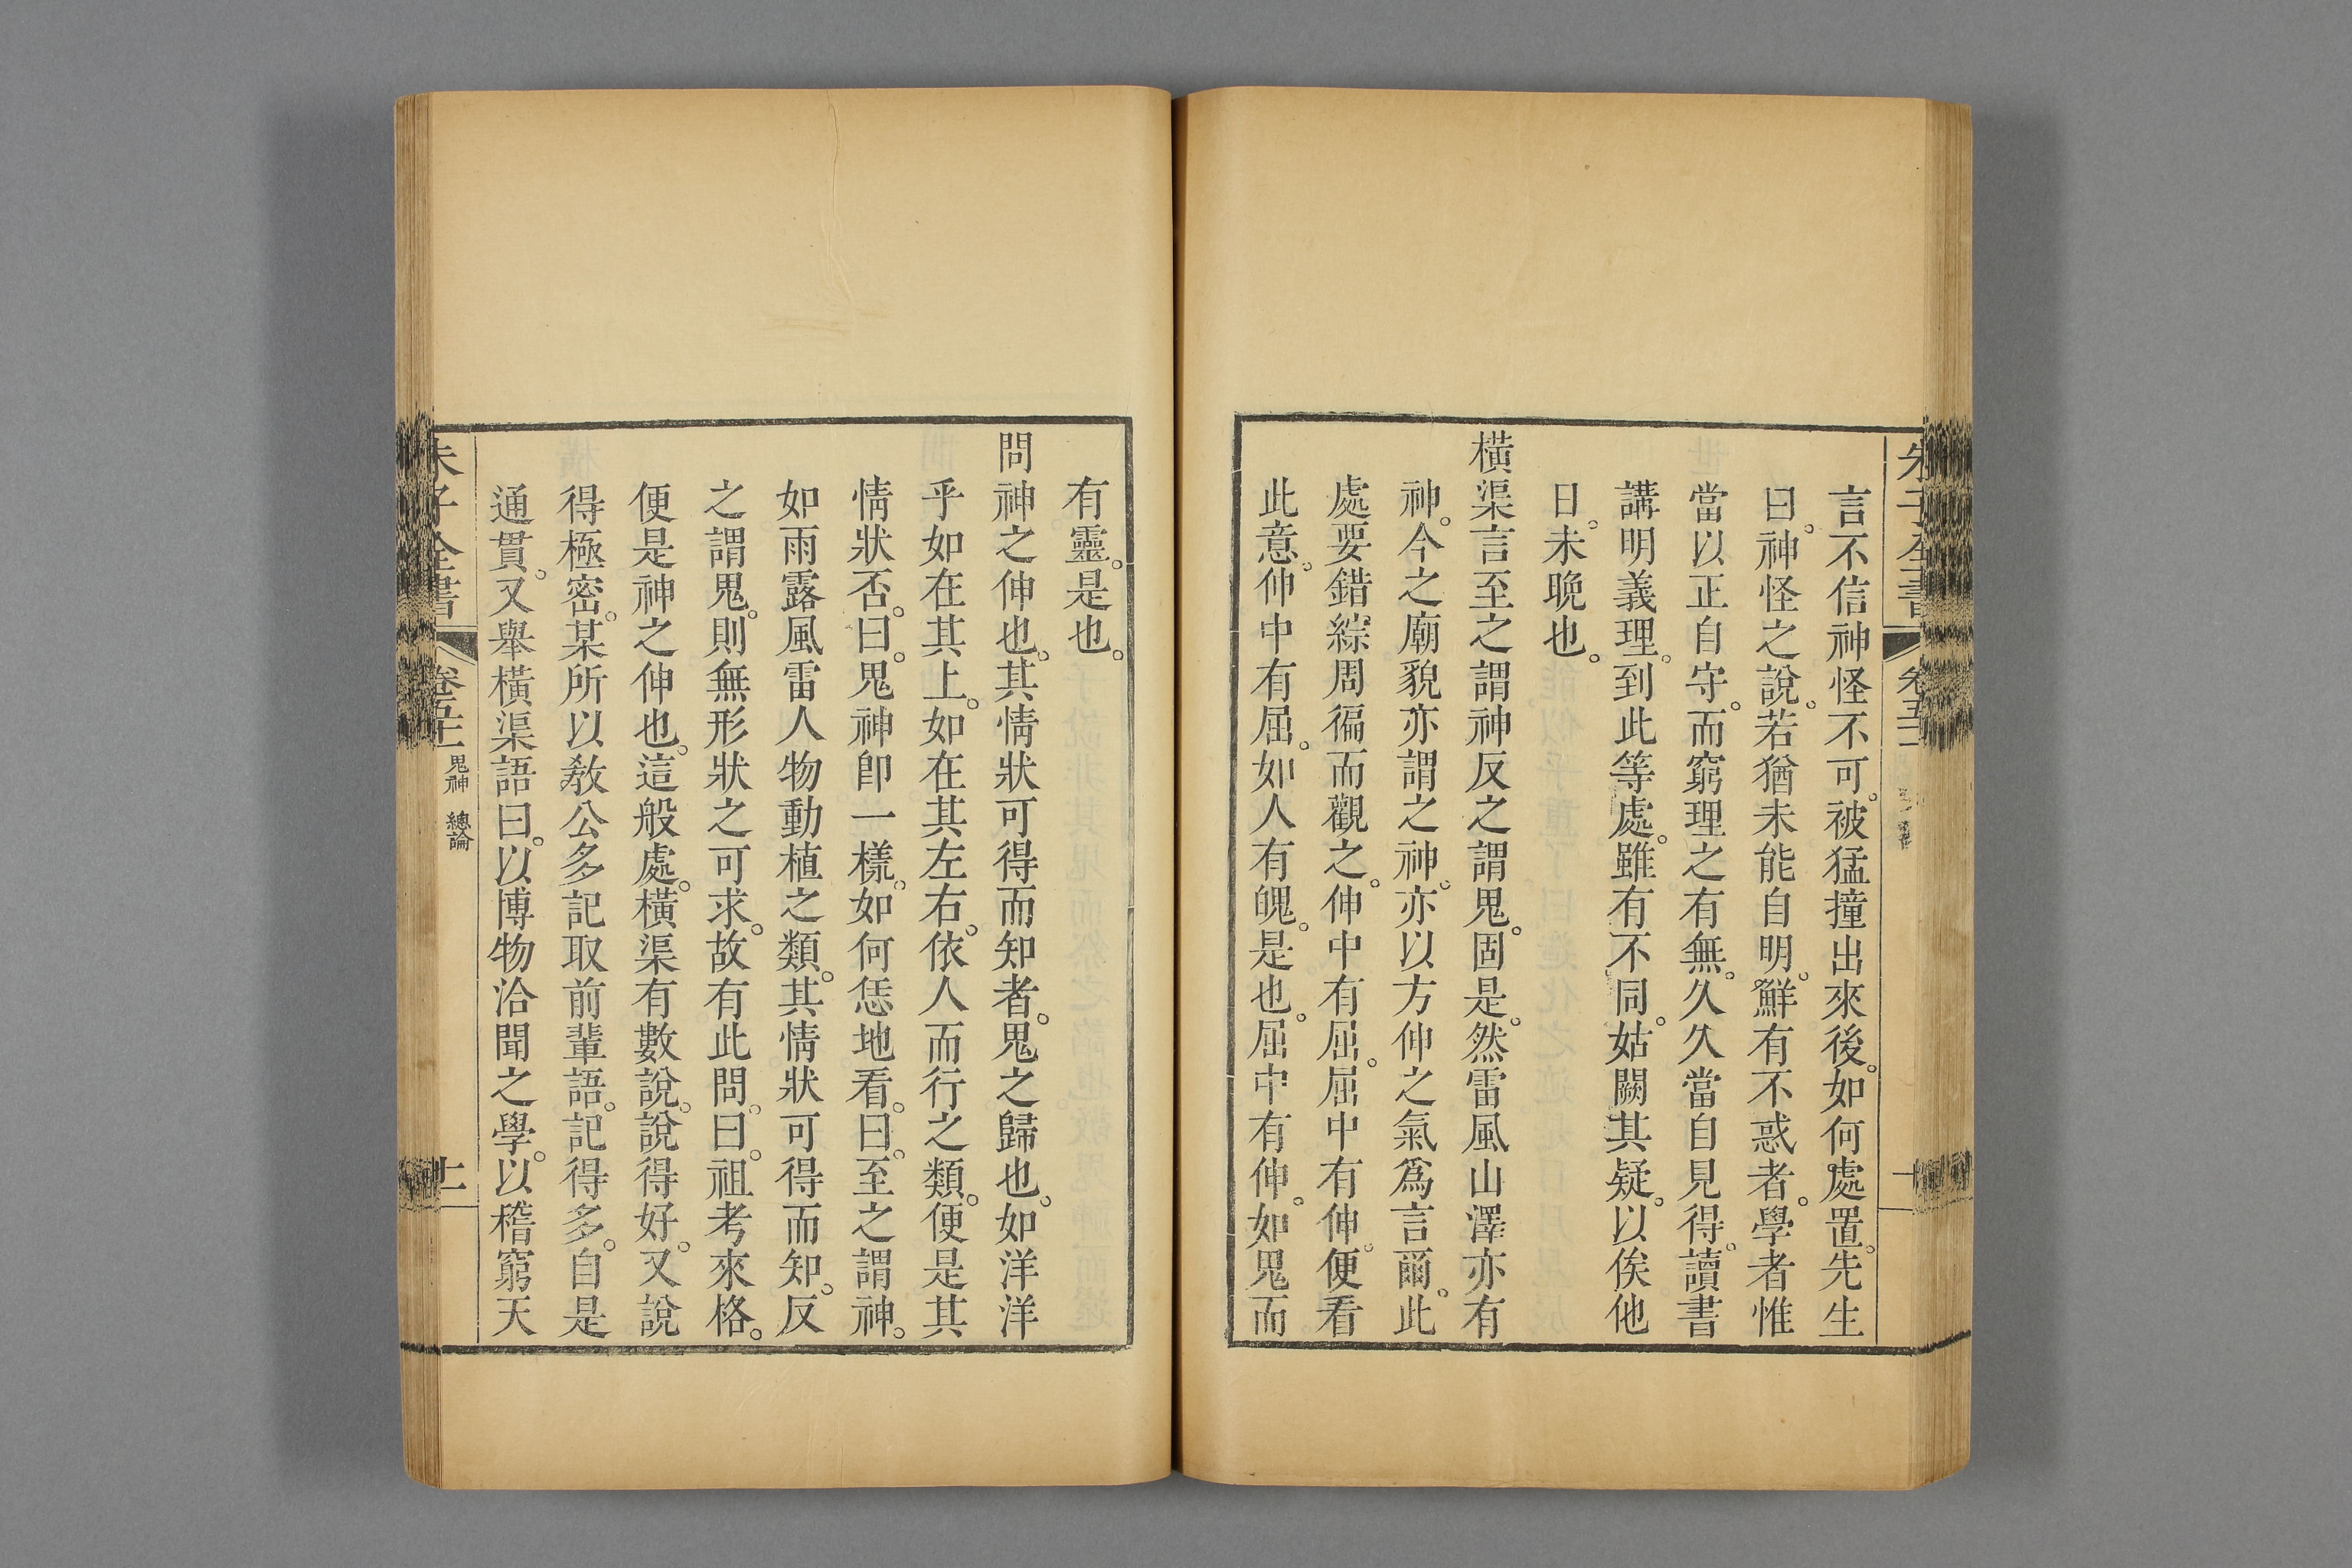 言不信神怪不可。被猛撞出來後。如何處置。先生
曰。神怪之說。若猶未能自明。鮮有不惑者。學者惟
當以正自守。而窮理之有無。久久當自見得。讀書
講明義理。到此等處。雖有不同。姑闕其疑。以俟他
日。未晩也。
橫渠言至之謂神反之謂鬼。固是。然雷風山澤亦有
神。今之廟貌亦謂之神。亦以方伸之氣爲言爾。此
處要錯綜周徧而觀之。伸中有屈。屈中有伸。便看
此意。伸中有屈。如人有魄。是也。屈中有伸。如鬼而
有靈。是也。
問神之伸也。其情狀可得而知者。鬼之歸也。如洋洋
乎如在其上。如在其左右。依人而行之類。便是其
情狀否。曰。鬼神卽一樣。如何恁地看。曰。至之謂神。
如雨露風雷人物動植之類。其情狀可得而知。反
之謂鬼。則無形狀之可求。故有此問。曰。祖考來格。
便是神之伸也。這般處。橫渠有數說。說得好。又說
得極密。某所以敎公多記取前輩語。記得多。自是
通貫。又舉橫渠語曰。以博物洽聞之學。以稽窮天
朱子全書
鬼神 總論